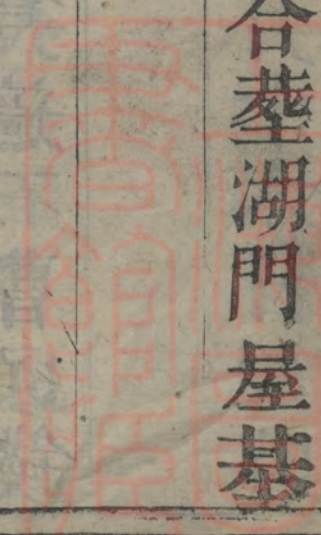 合塟湖門屋基